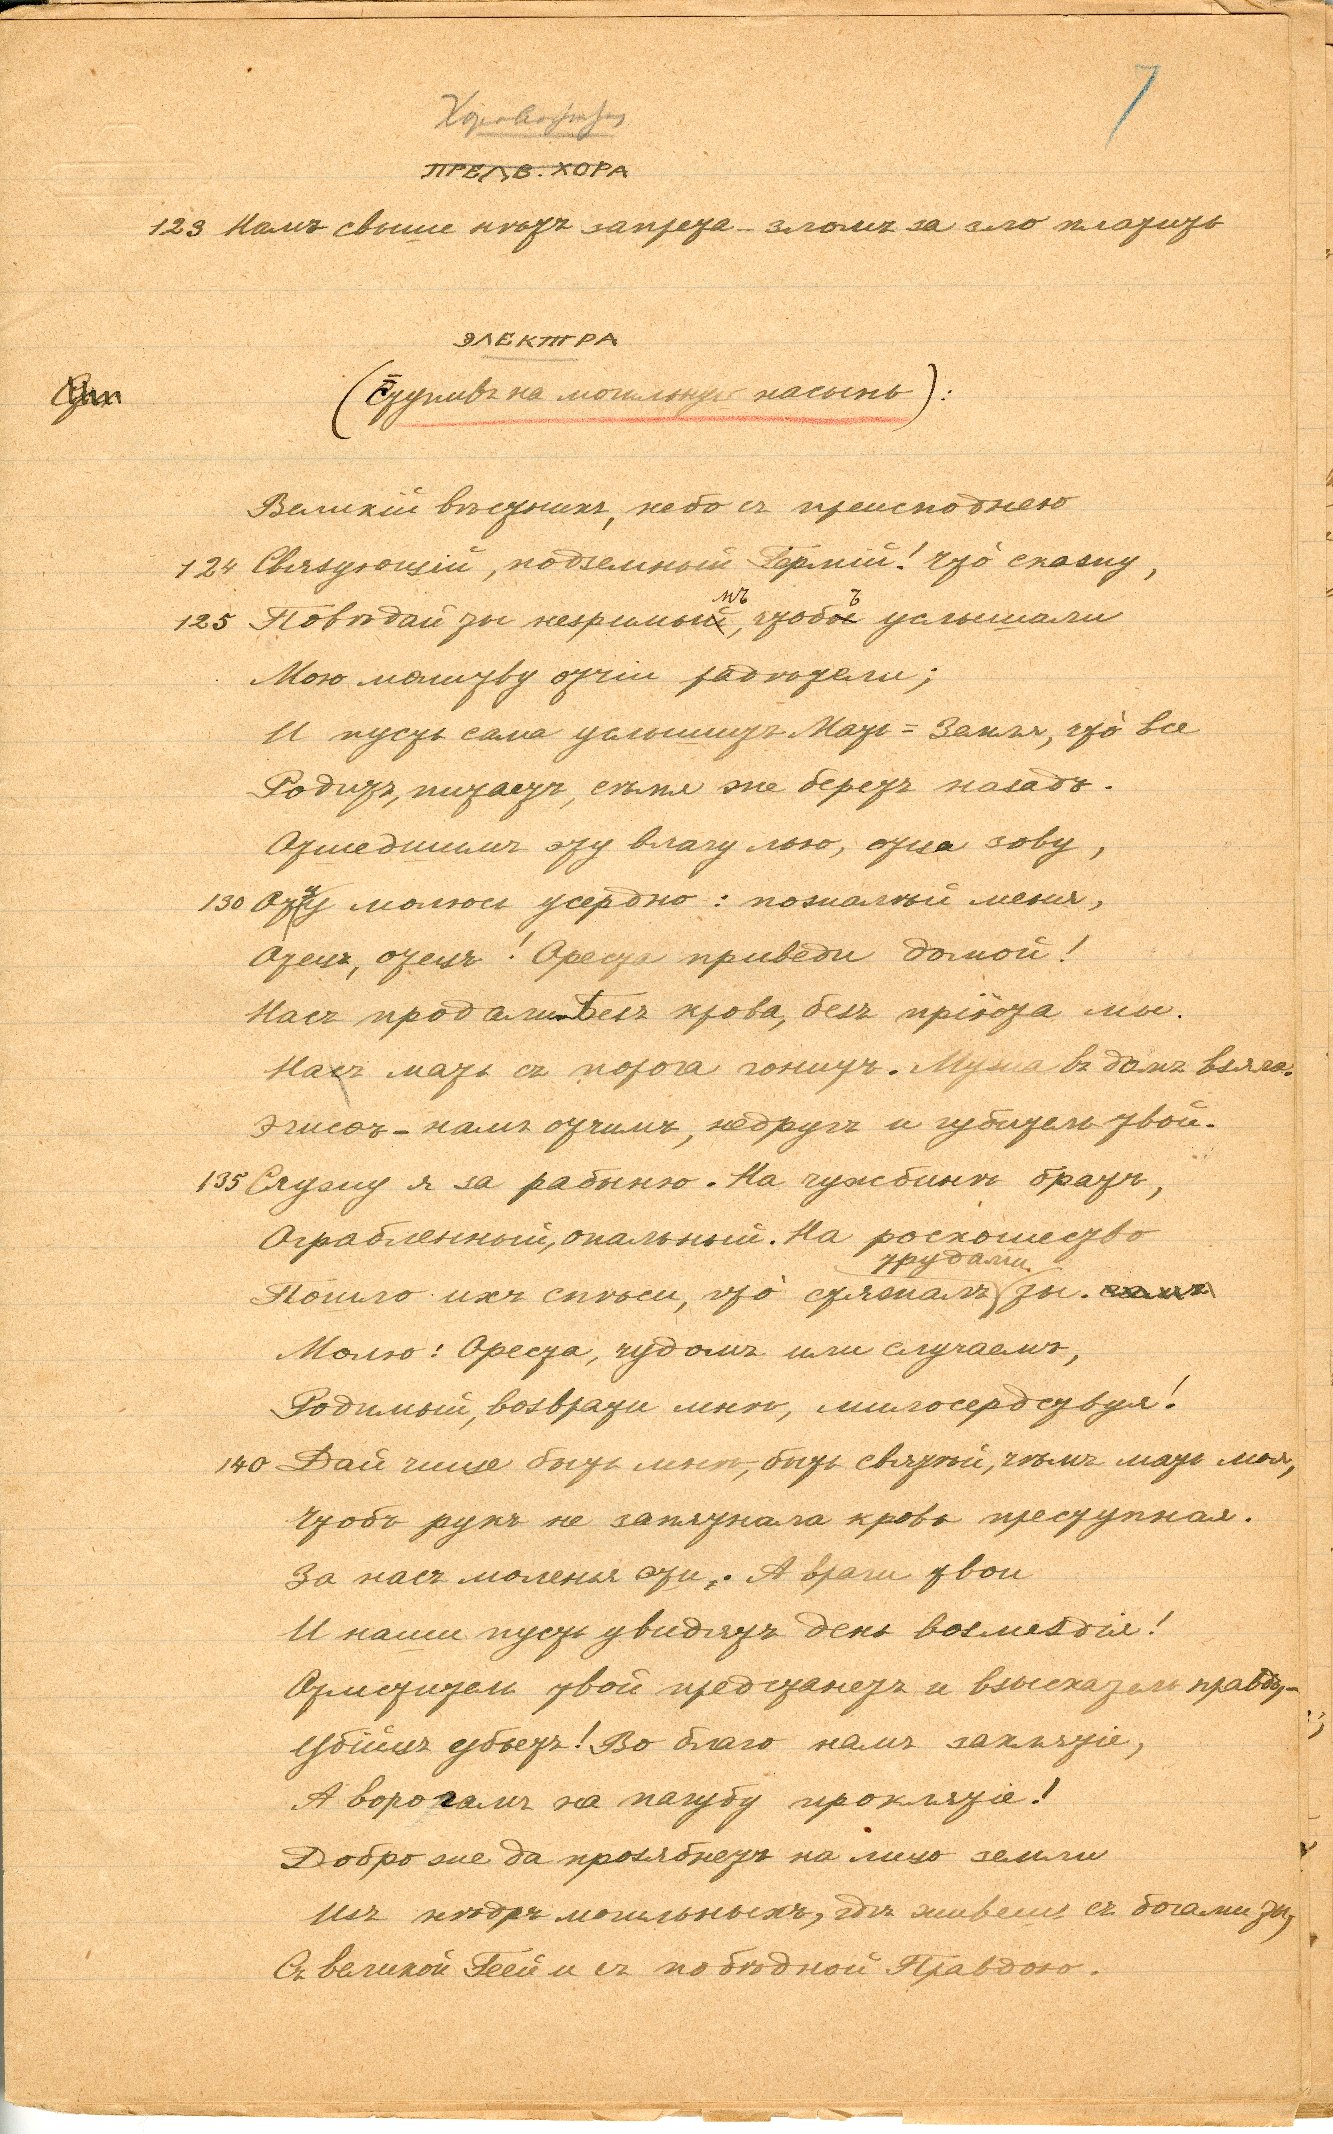 7
ПРЕДВ. ХОРА
123 Намъ свыше нѣтъ запрета – зломъ за зло платить
ЭЛЕКТРА
(Ступивъ на могильную насыпь):
Великій вѣстникъ, небо съ преисподнею
124 Связующій, подземный Гермій! Что̀ скажу,
125 Повѣдай ты незримымъ, чтобъ услышали
Мою молитву отчіи радѣтели;
И пусть сама услышитъ Мать-Земля, что̀ все
Родитъ, питаетъ, сѣмя же беретъ назадъ.
Отшедшимъ эту влагу лью, отца зову,
130 Отцу молюсь усердно: пожалѣй меня,
Отецъ, отецъ! Ореста приведи домой!
Насъ продали. Безъ крова, безъ пріюта мы.
Насъ мать съ порога гонитъ. Мужа въ домъ взяла.
Эгисѳъ – намъ отчимъ, недругъ и губитель твой.
135 Служу я за рабыню. На чужбинѣ братъ,
Ограбленный, опальный. На роскошество
трудами
Пошло ихъ спѣси, что̀ стяжалъ ты.
Молю: Ореста, чудомъ или случаемъ,
Родимый, возврати мнѣ, милосердствуя!
140 Дай чище быть мнѣ, быть святѣй, чѣмъ мать моя,
Чтобъ рукъ не запятнала кровь преступная.
За насъ моленья эти. А враги твои
И наши пусть увидятъ день возмездія!
Отмститель твой предстанетъ и взыскатель правды, –
Убійцъ убьетъ! Во благо намъ заклятіе,
А ворогамъ на пагубу проклятіе!
Добро же да прозябнетъ на лицо земли
Изъ нѣдръ могильныхъ, гдѣ живешь съ богами ты,
Съ великой Геей и съ побѣдной Правдою.